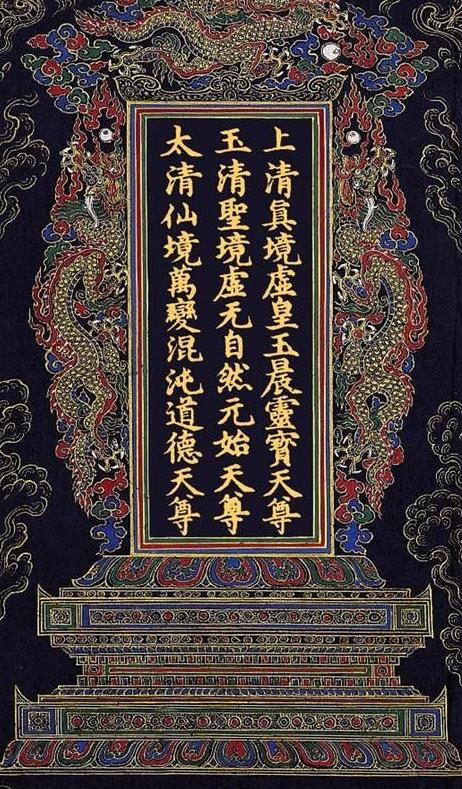 上清眞境虛皇玉晨靈寳天尊
玉清聖境虛无自然元始天尊
太清仙境萬變混沌道德天尊